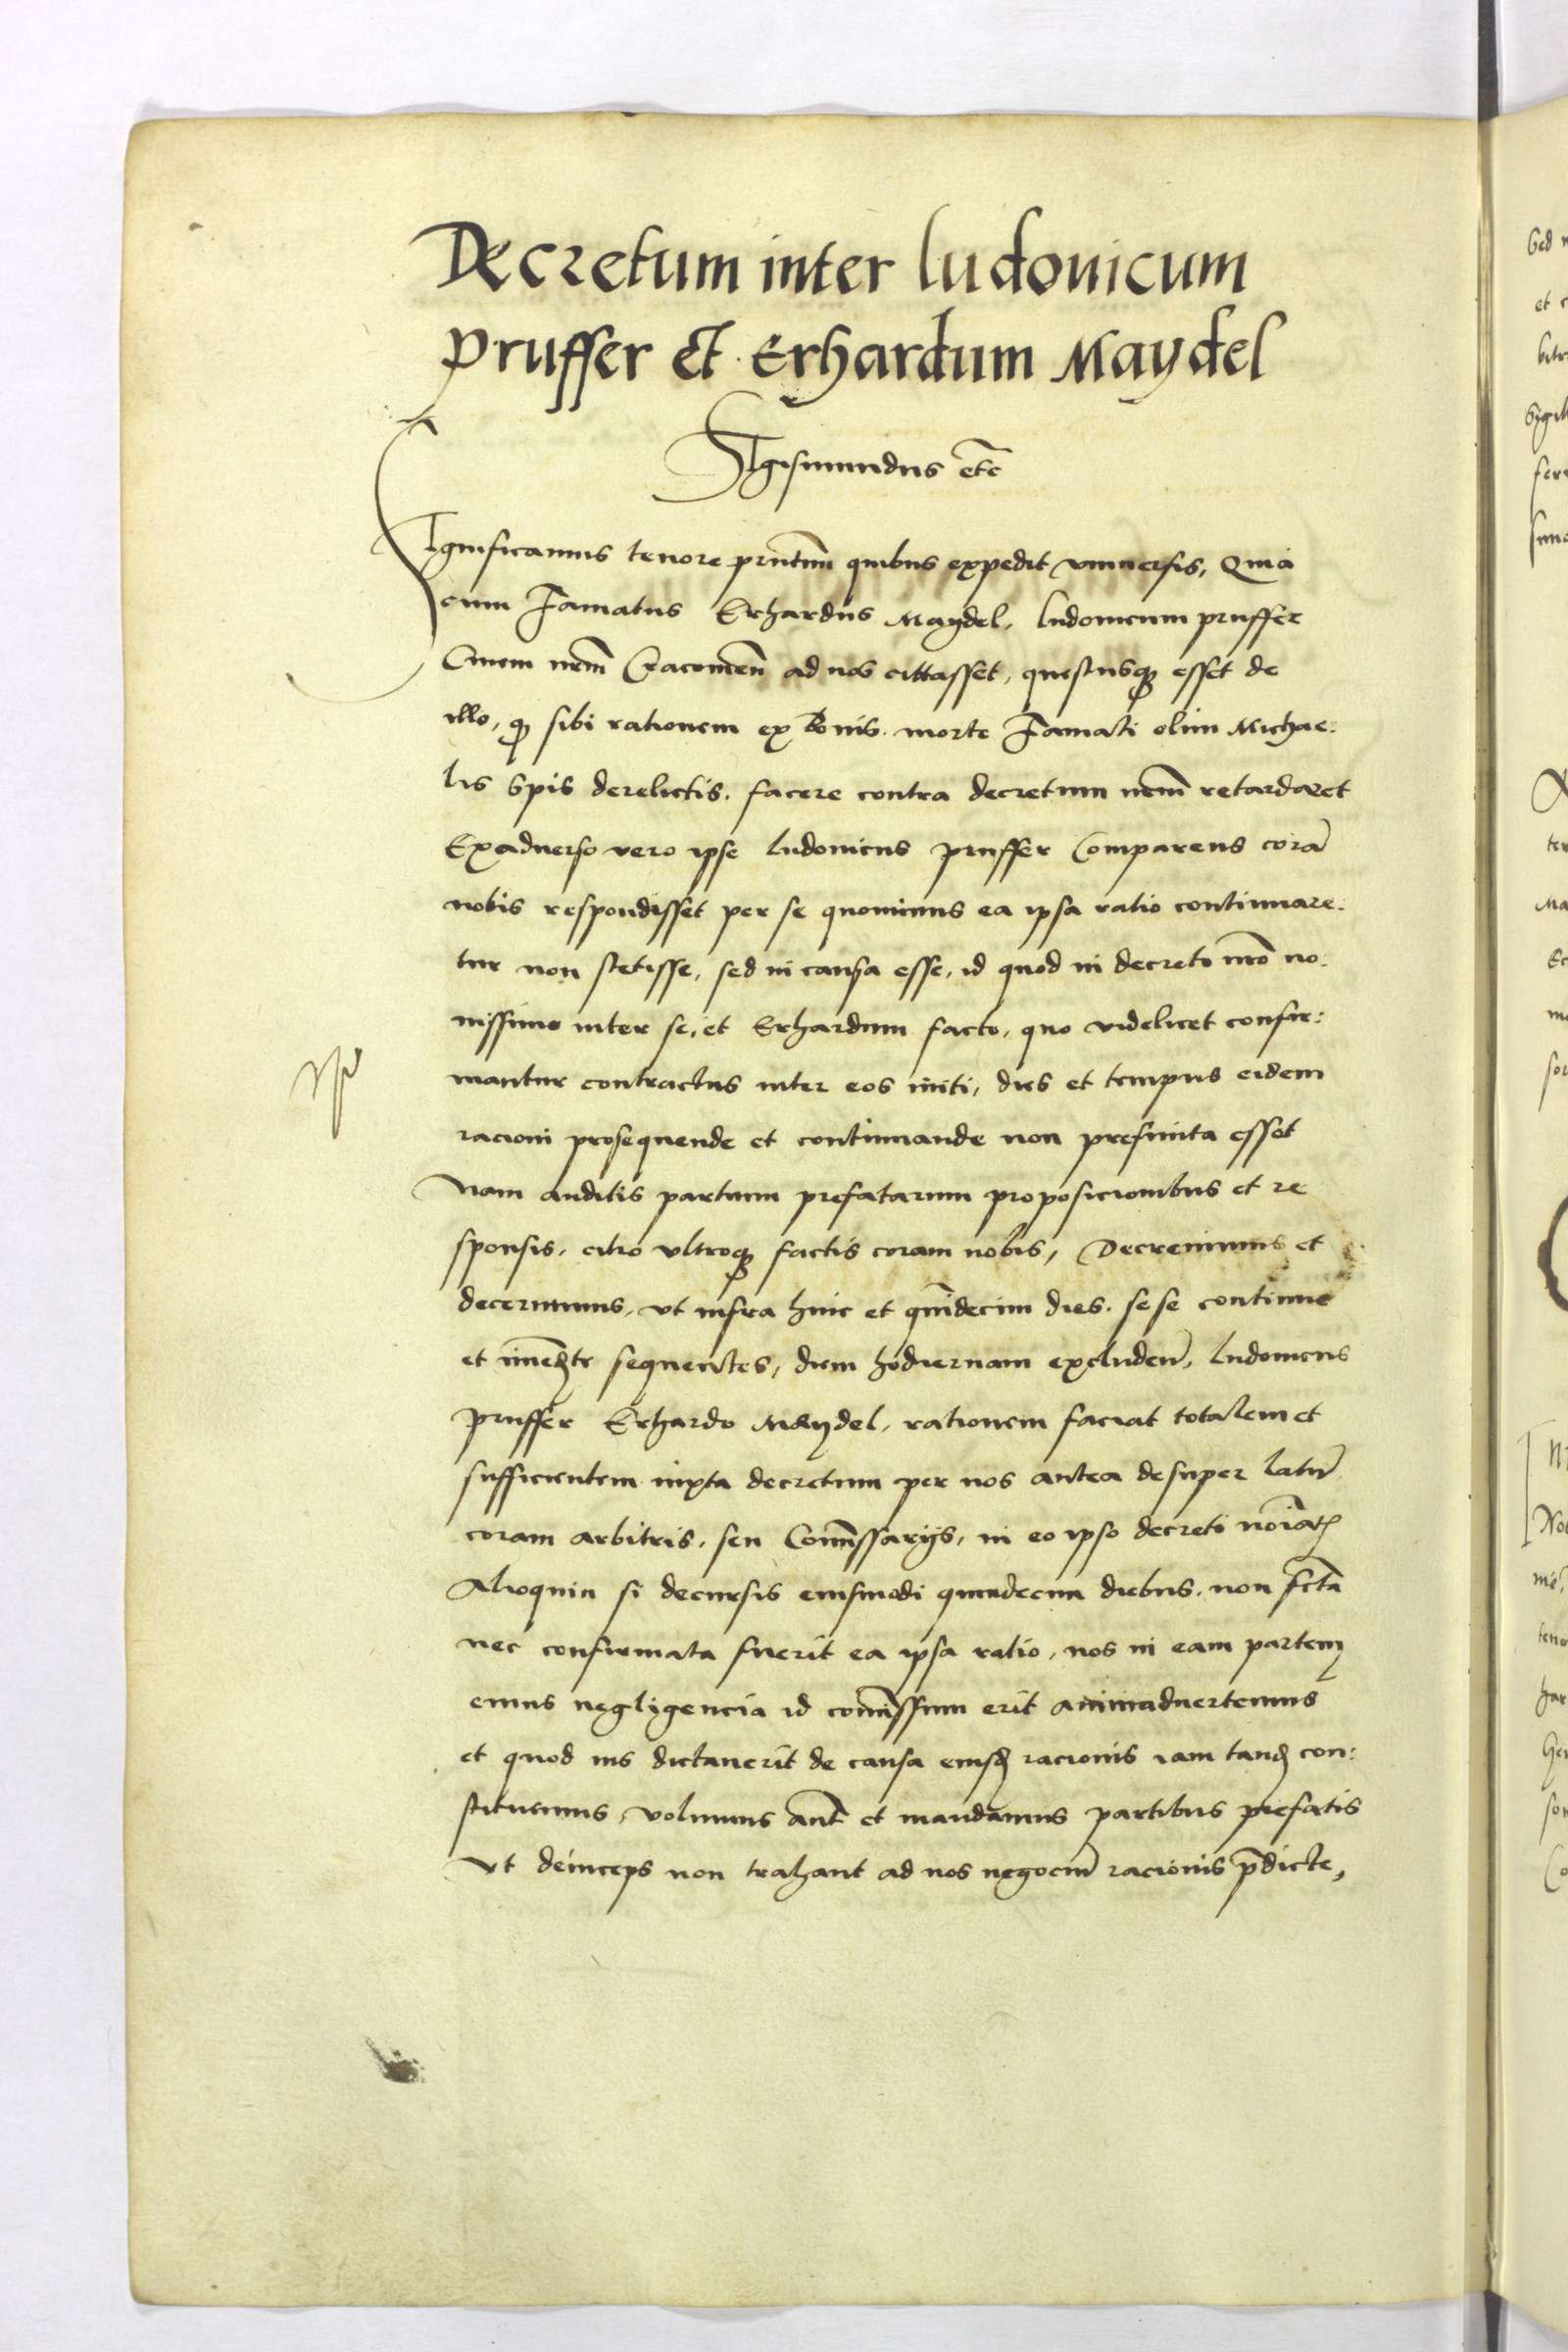 Decretum inter ludouicum
pruffer et Erhardum Maydel
Sigismundus etc̃
Significamus tenore pñtium quibus expedit vniuersis, Quia
cum Famatus Erhardus Maydel, ludouicum pruffer
Ciuem nr̃m Cracouieñ ad nos cittasset, questusq̨ esset de
illo, q̨ sibi rationem ex bonis morte Famati olim Michae:
lis Spis derelictis, facere contra decretum nr̃m retardaret
Exaduerso vero ipse ludouicus pruffer Comparens corã
nobis respondisset per se quominus ea ipsa ratio continuare:
tur non stetisse, sed in causa esse, id quod in decreto nr̃o no:
uissimo inter se, et Erhardum facto, quo videlicet confir:
mantur contractus inter eos initi, dies et tempus eidem
racioni prosequende et continuande non prefinita esset
Nam auditis partium prefatarum proposicionibus et re
sponsis, citro vltroq̨ factis coram nobis, Decreuimus et
decernimus, vt infra hinc et quĩdecim dies, sese continue
et imẽdte sequentes, diem hodiernam excludeñ, ludouicus
pruffer Erhardo Maydel, rationem faciat totalem et
sufficientem iuxta decretum per nos antea desuper latũ
coram arbitris, seu Com̃issarijs, in eo ipso decreto noĩatis
Alioquin si decursis eiusmodi quindecim diebus, non fcta
nec confirmata fuerit ea ipsa ratio, nos in eam partem
cuius negligencia id com̃issum erit animaduertemus
et quod ius dictauerit de causa eiusd racionis iam tand con:
stituemus, volumus aut̃ et mandamus partibus prefatis
vt deinceps non trahant ad nos negociũ racionis p̃dicte,